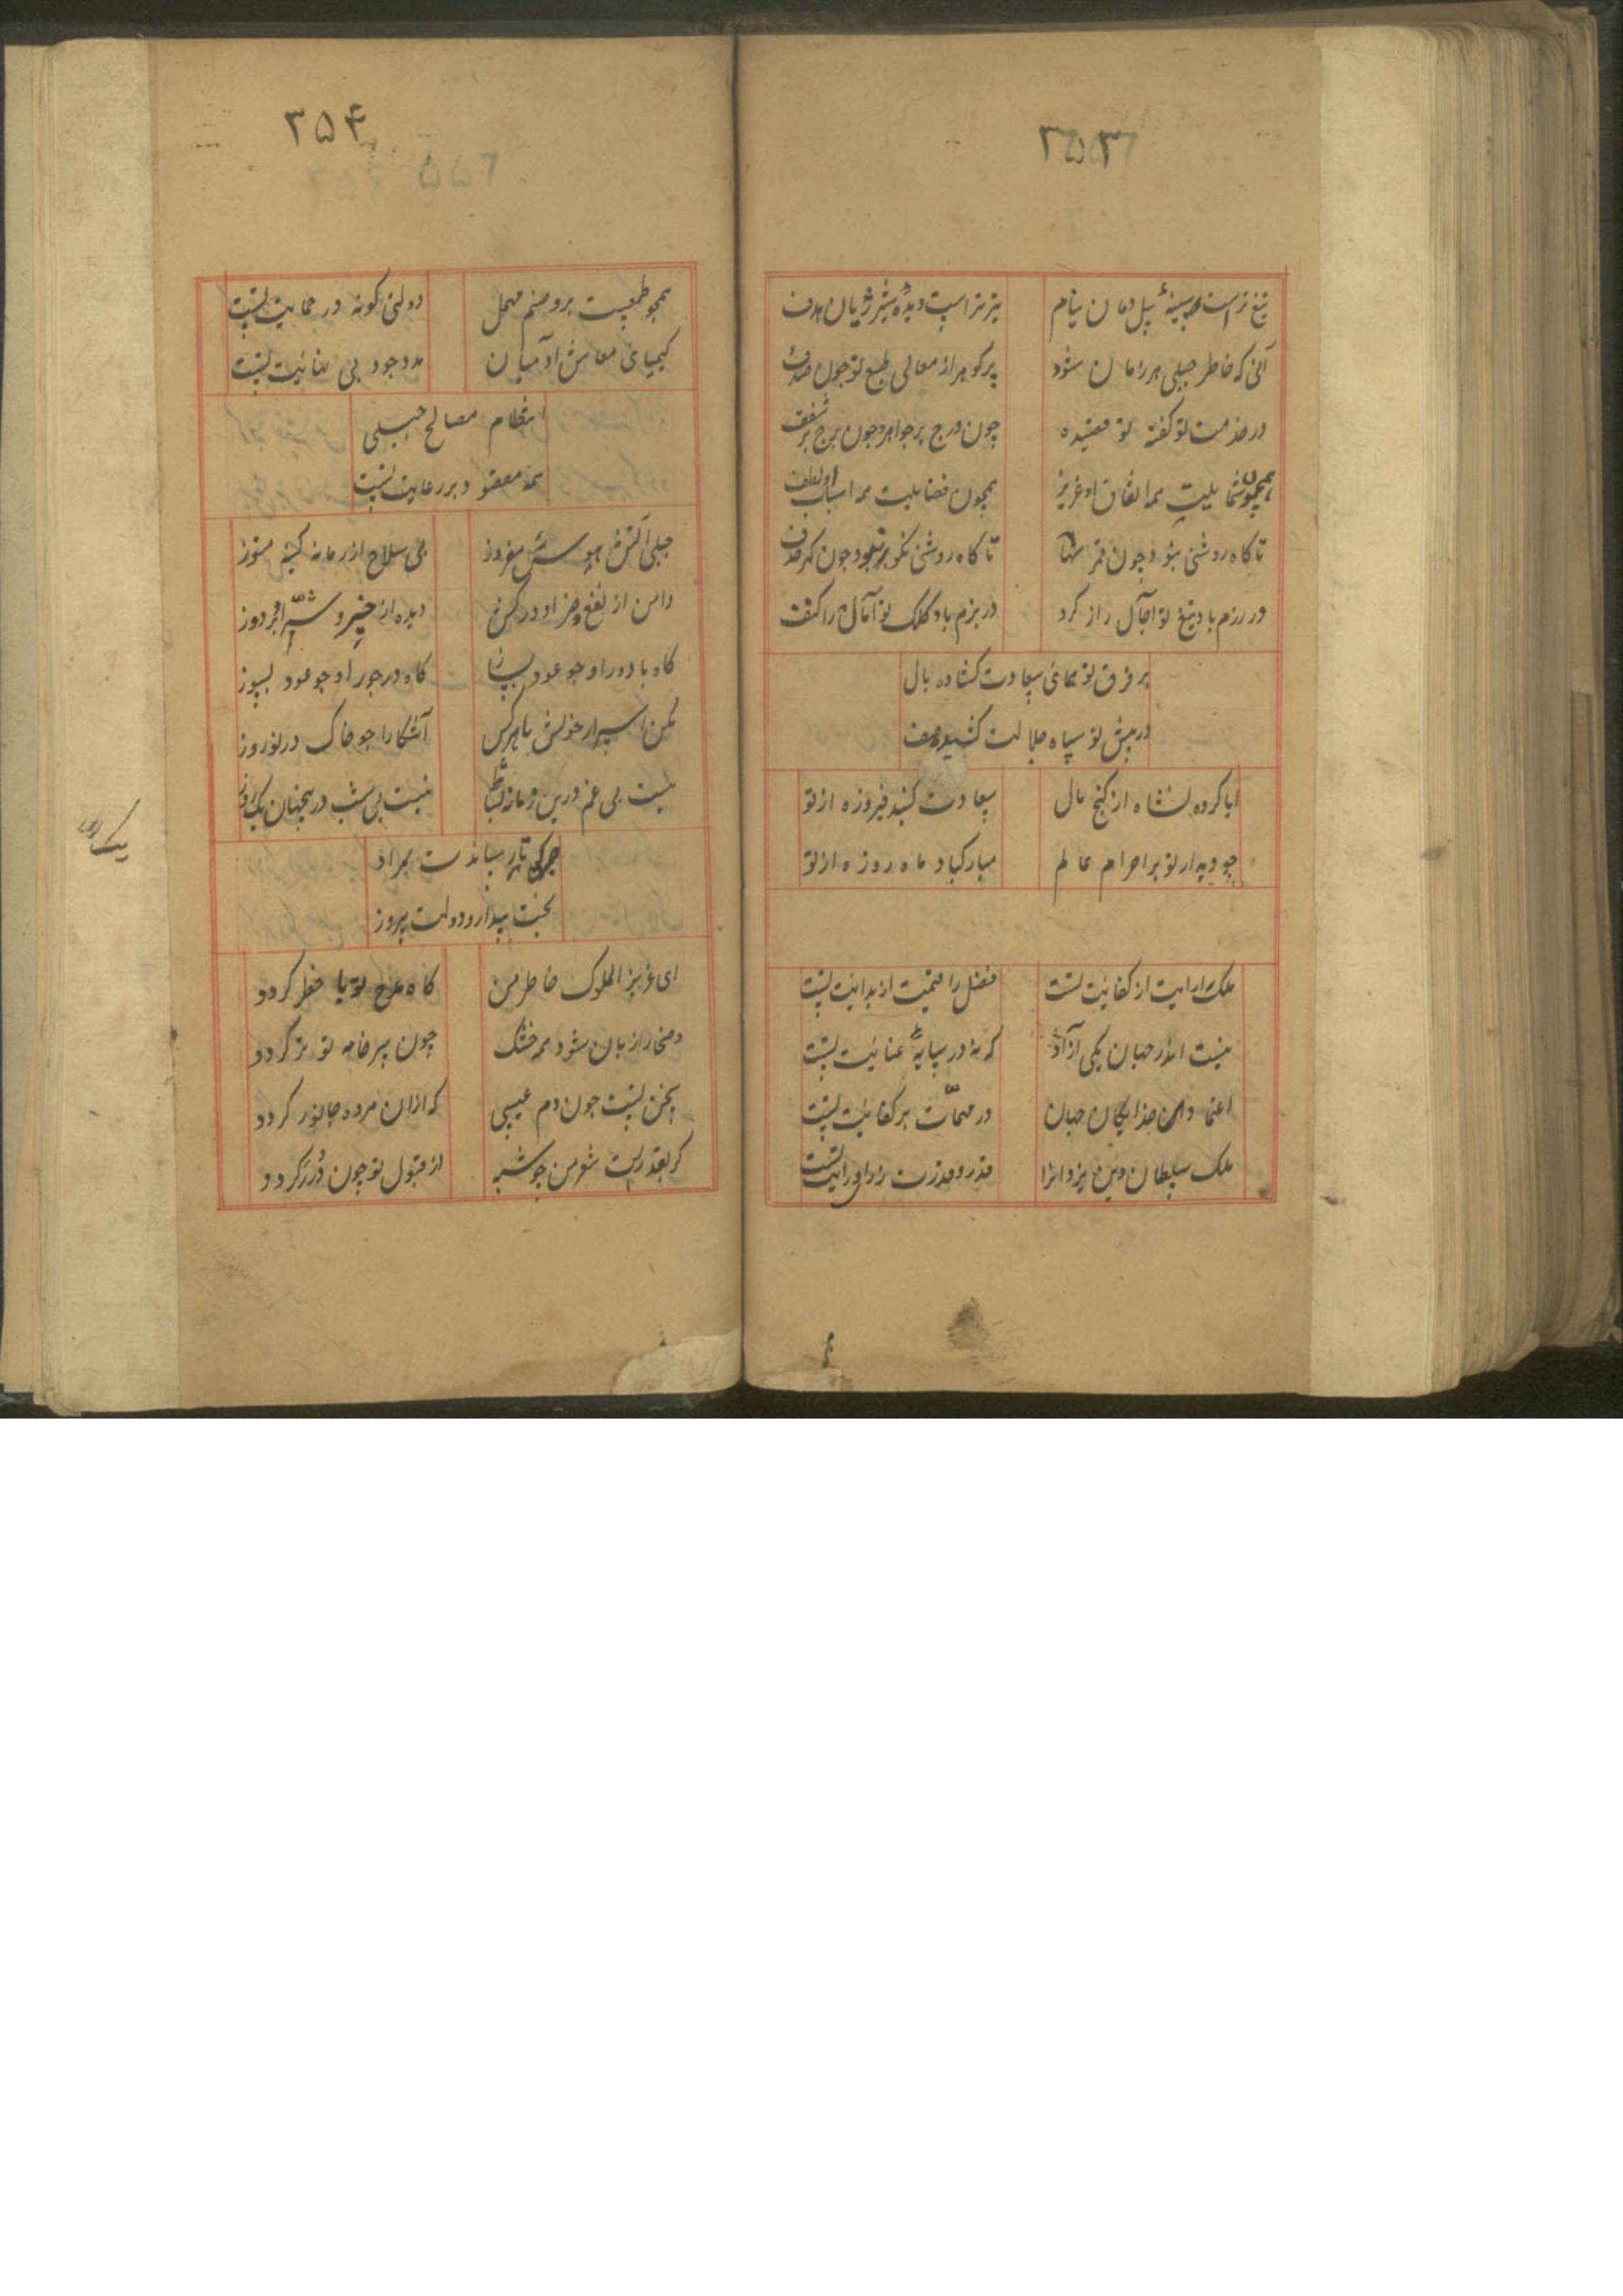 ۳۵۳
تیغ تراست سینهٔ پیل دمان نیام
تیر تراست دیدهٔ شیر ژیان هدف
آنی که خاطر جبلی هر زمان شود
پر گوهر از معالی طبع تو چون صدف
در خدمت تو گفته تو قصیده
چون درج پر جواهر و چون برج پر شرف
همچون شمایلیت همه اتفاق او عزیز
همچون فضایلیت همه اسباب او لطف
تا گاه روشنی نبود چون قمر سها
تا گاه روشنی نکو نبود چون گهر خزف
در رزم باد تیغ تو آجال راز کرد
در بزم باد کلک تو آمال را کنف
بر فرق تو همای سعادت کشاده بال
در پیش تو سپاه جلالت کشیده صف
ایا کرده نشاه از گنج مال
سعادت گنبد فیروزه از تو
چو دیدار تو بر احرام عالم
مبارکباد ماه روزه از تو
ملک آرایت از کفایت تست
فضل را قیمت از بدایت تست
نیست اندر جهان یکی آزاد
که نه در سایهٔ عنایت تست
اعتماد خدایگان جهان
در مهمّات بر کفایت تست
ملک سلطان دین یزدانرا
قدر و قدرت ز رای و رایت تست
۳۵۴
همچو طمعیست برو منم مهمل
دولتی گونه در حمایت تست
کیمیای معاش آدمیان
مدد جود بی نهایت تست
انتظام مصالح جبلی
همه معقود بر رعایت تست
جبلی آتش هوس مفروز
بی سلاح از زمانه کینه متوز
دامن از نفع و ضر او در کش
دیده از خیر و شرّ او بر دوز
گاه با دور او چو عود بساز
گاه در جور او چو عود بسوز
مکن اسرار خویش با هر کس
آشکارا چو خاک در نوروز
نیست بی غم درین زمانه نشاط
نیست بی شب درینجهان یک روز
یک روز
تا رساندت بمراد
بخت بیدار و دولت پیروز
ای عزیز الملوک خاطر من
گاه مدح تو با خطر گردد
دشمن را زبان شود همه خشک
چون سر خامه تو تر گردد
سخن تست چون دم عیسی
که ازان مرده جانور گردد
گر بقدرست شعر من چو شبه
از قبول تو چون دُرر گردد